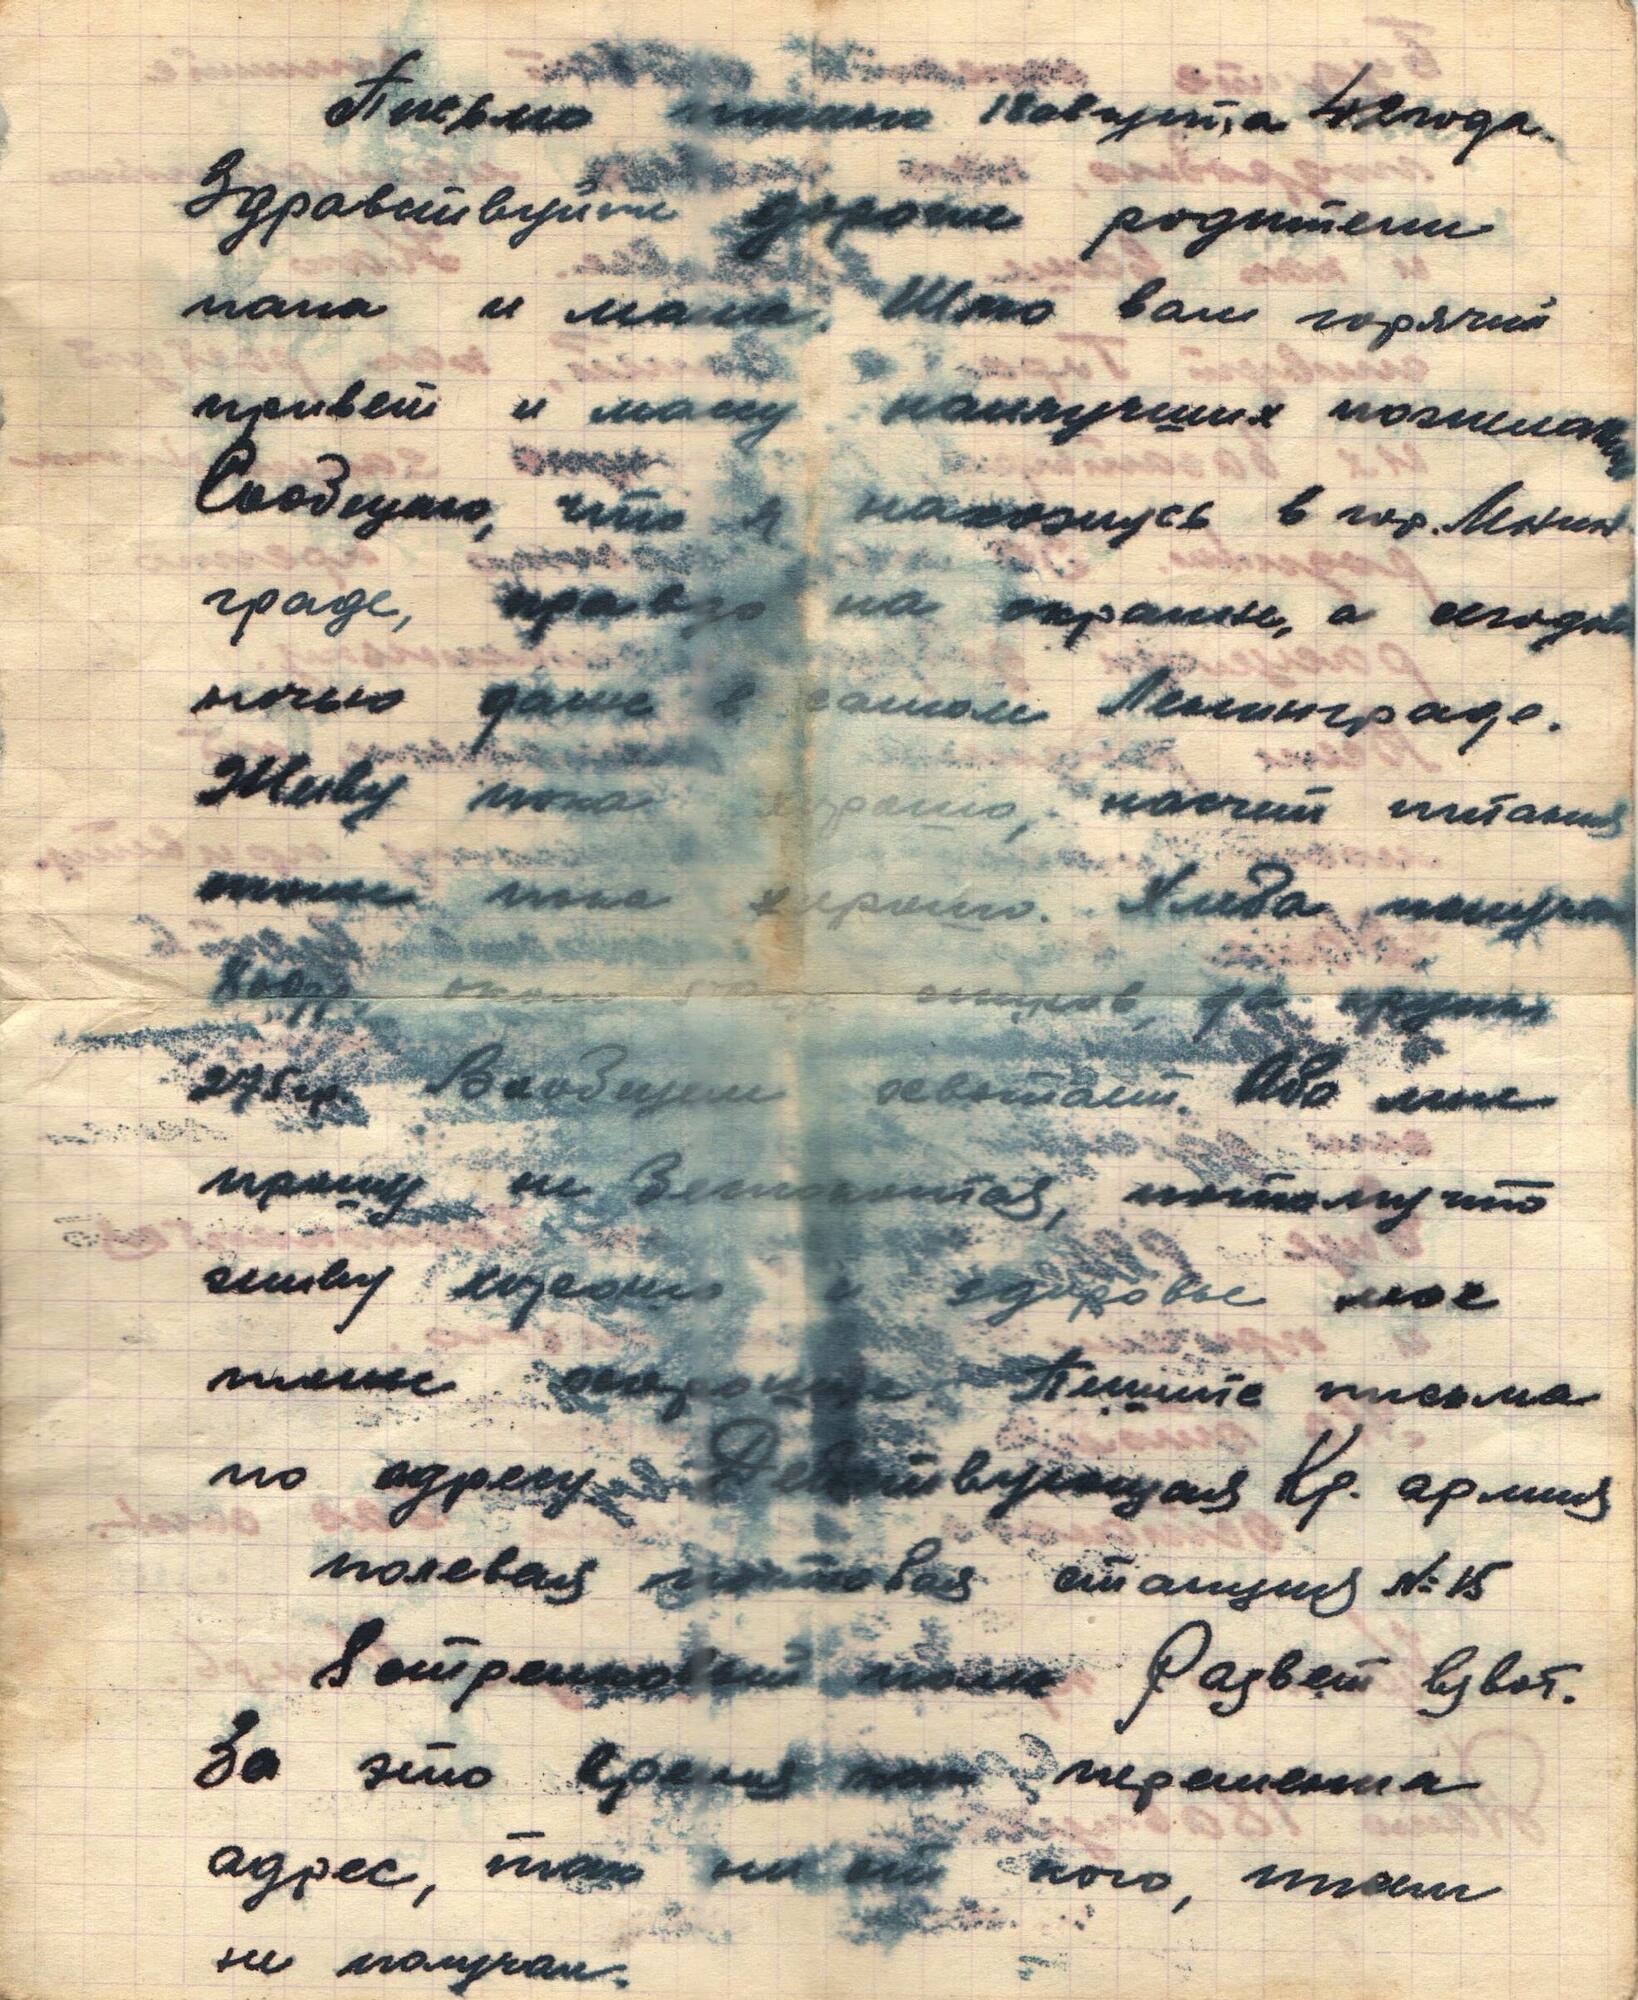 Письмо пишу 18 августа 42 года.
Здравствуйте дорогие родители
папа и мама. Шлю вам горячий
привет и массу наилучших пожеланий
Сообщаю, что я нахожусь в гор. Ленин
граде, правда на окраине, а сегодня
ночью даже в самом Ленинграде.
Живу пока хорошо, насчет питания
тоже пока хорошо. Хлеба получаю
около сухарей, да крупы
275 гр. Вообщем хватает. Обо мне
прошу не беспокоится, потому что
живу хорошо и здоровье мое
тоже хорошее. Пишите письма
по адресу Действующая Кр. армия
полевая почтовая станция № 15
8 стрелковый полк Развет взвот.
За это время как переменил
адрес, так ни от кого, писем
не получал.